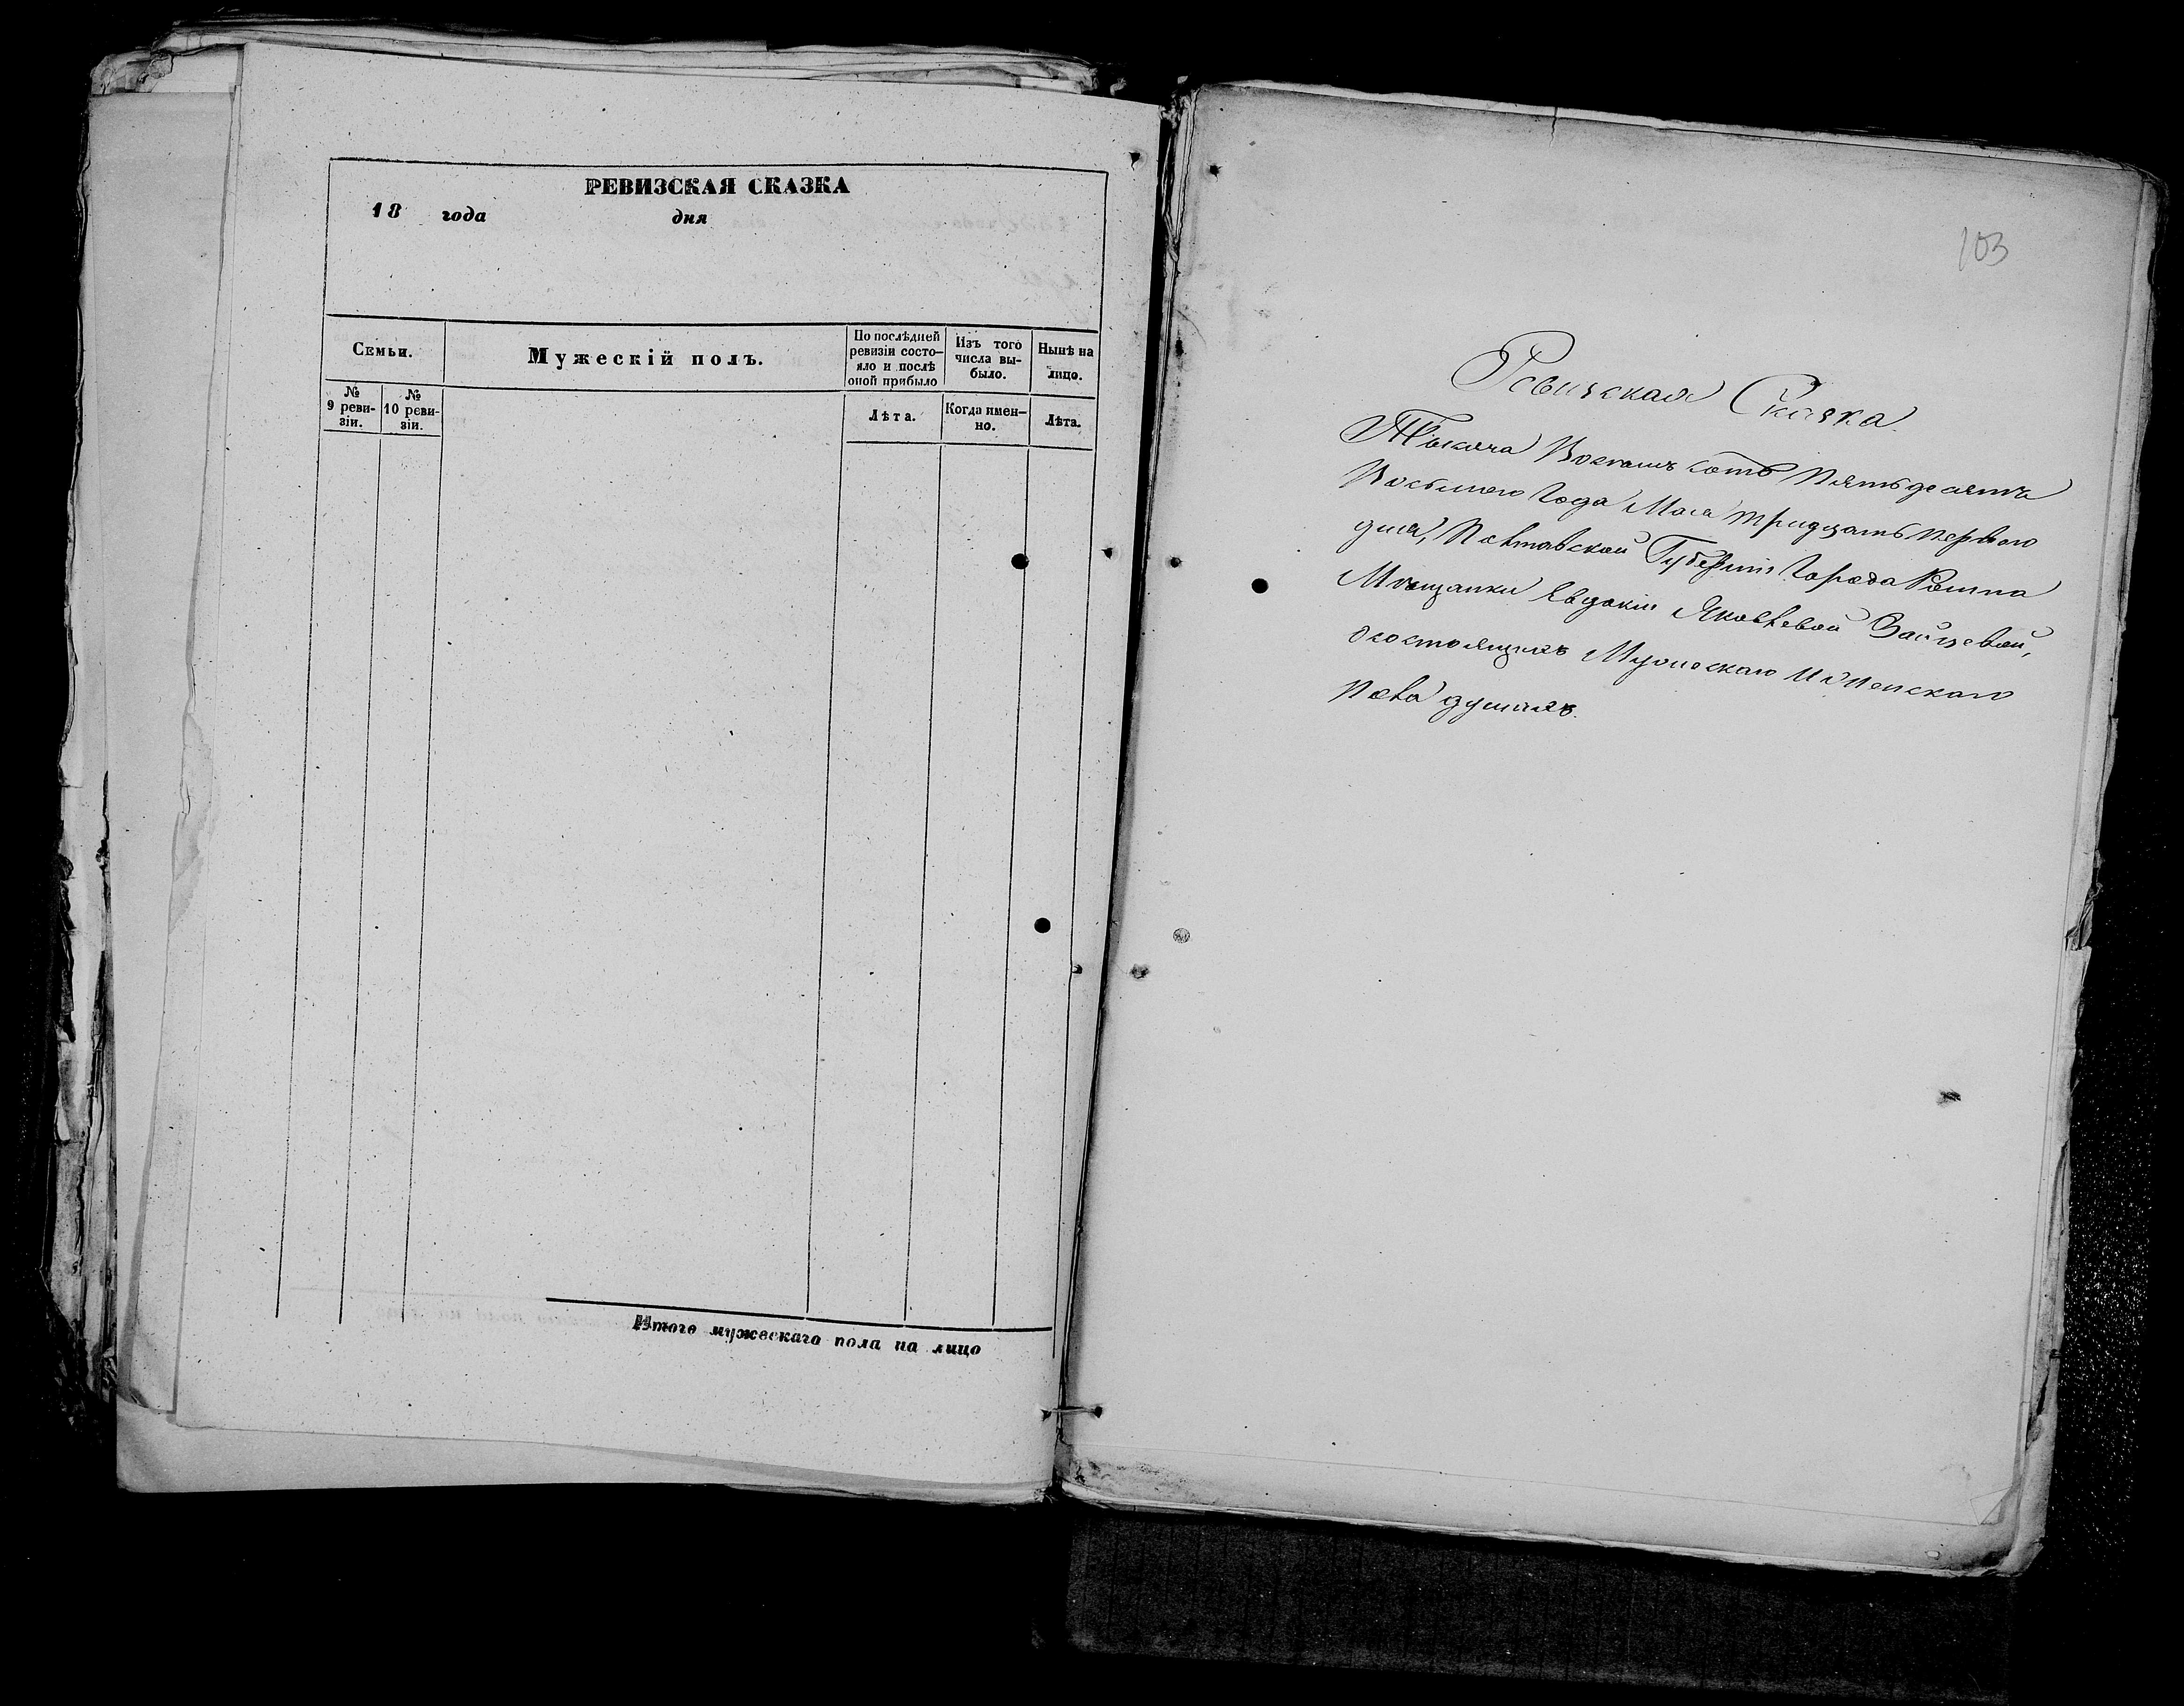 РЕВИЗСКАЯ СКАЗКА
18 года дня
Семьи.
Мужескій полъ.
По послѣдней
ревизіи состо-
яло и послѣ
оной прибыло
Изъ того
числа вы-
было.
Нынѣ на
лицо.
№
9 реви-
зіи.
№
10 реви-
зіи.
Лѣта.
Когда имен-
но.
Лѣта.
Итого мужескаго пола на лицо
103
Ревизская Сказка
Тысяча Восемь сотъ Пятьдесятъ
Восьмаго Года Мая тридцать перваго
дня, Полтавской Губерніи Города Ромна
Мѣщанки Евдокіи Яковлевой Зайцевой,
о состоящихъ Мужескаго и Женскаго
пола душахъ.